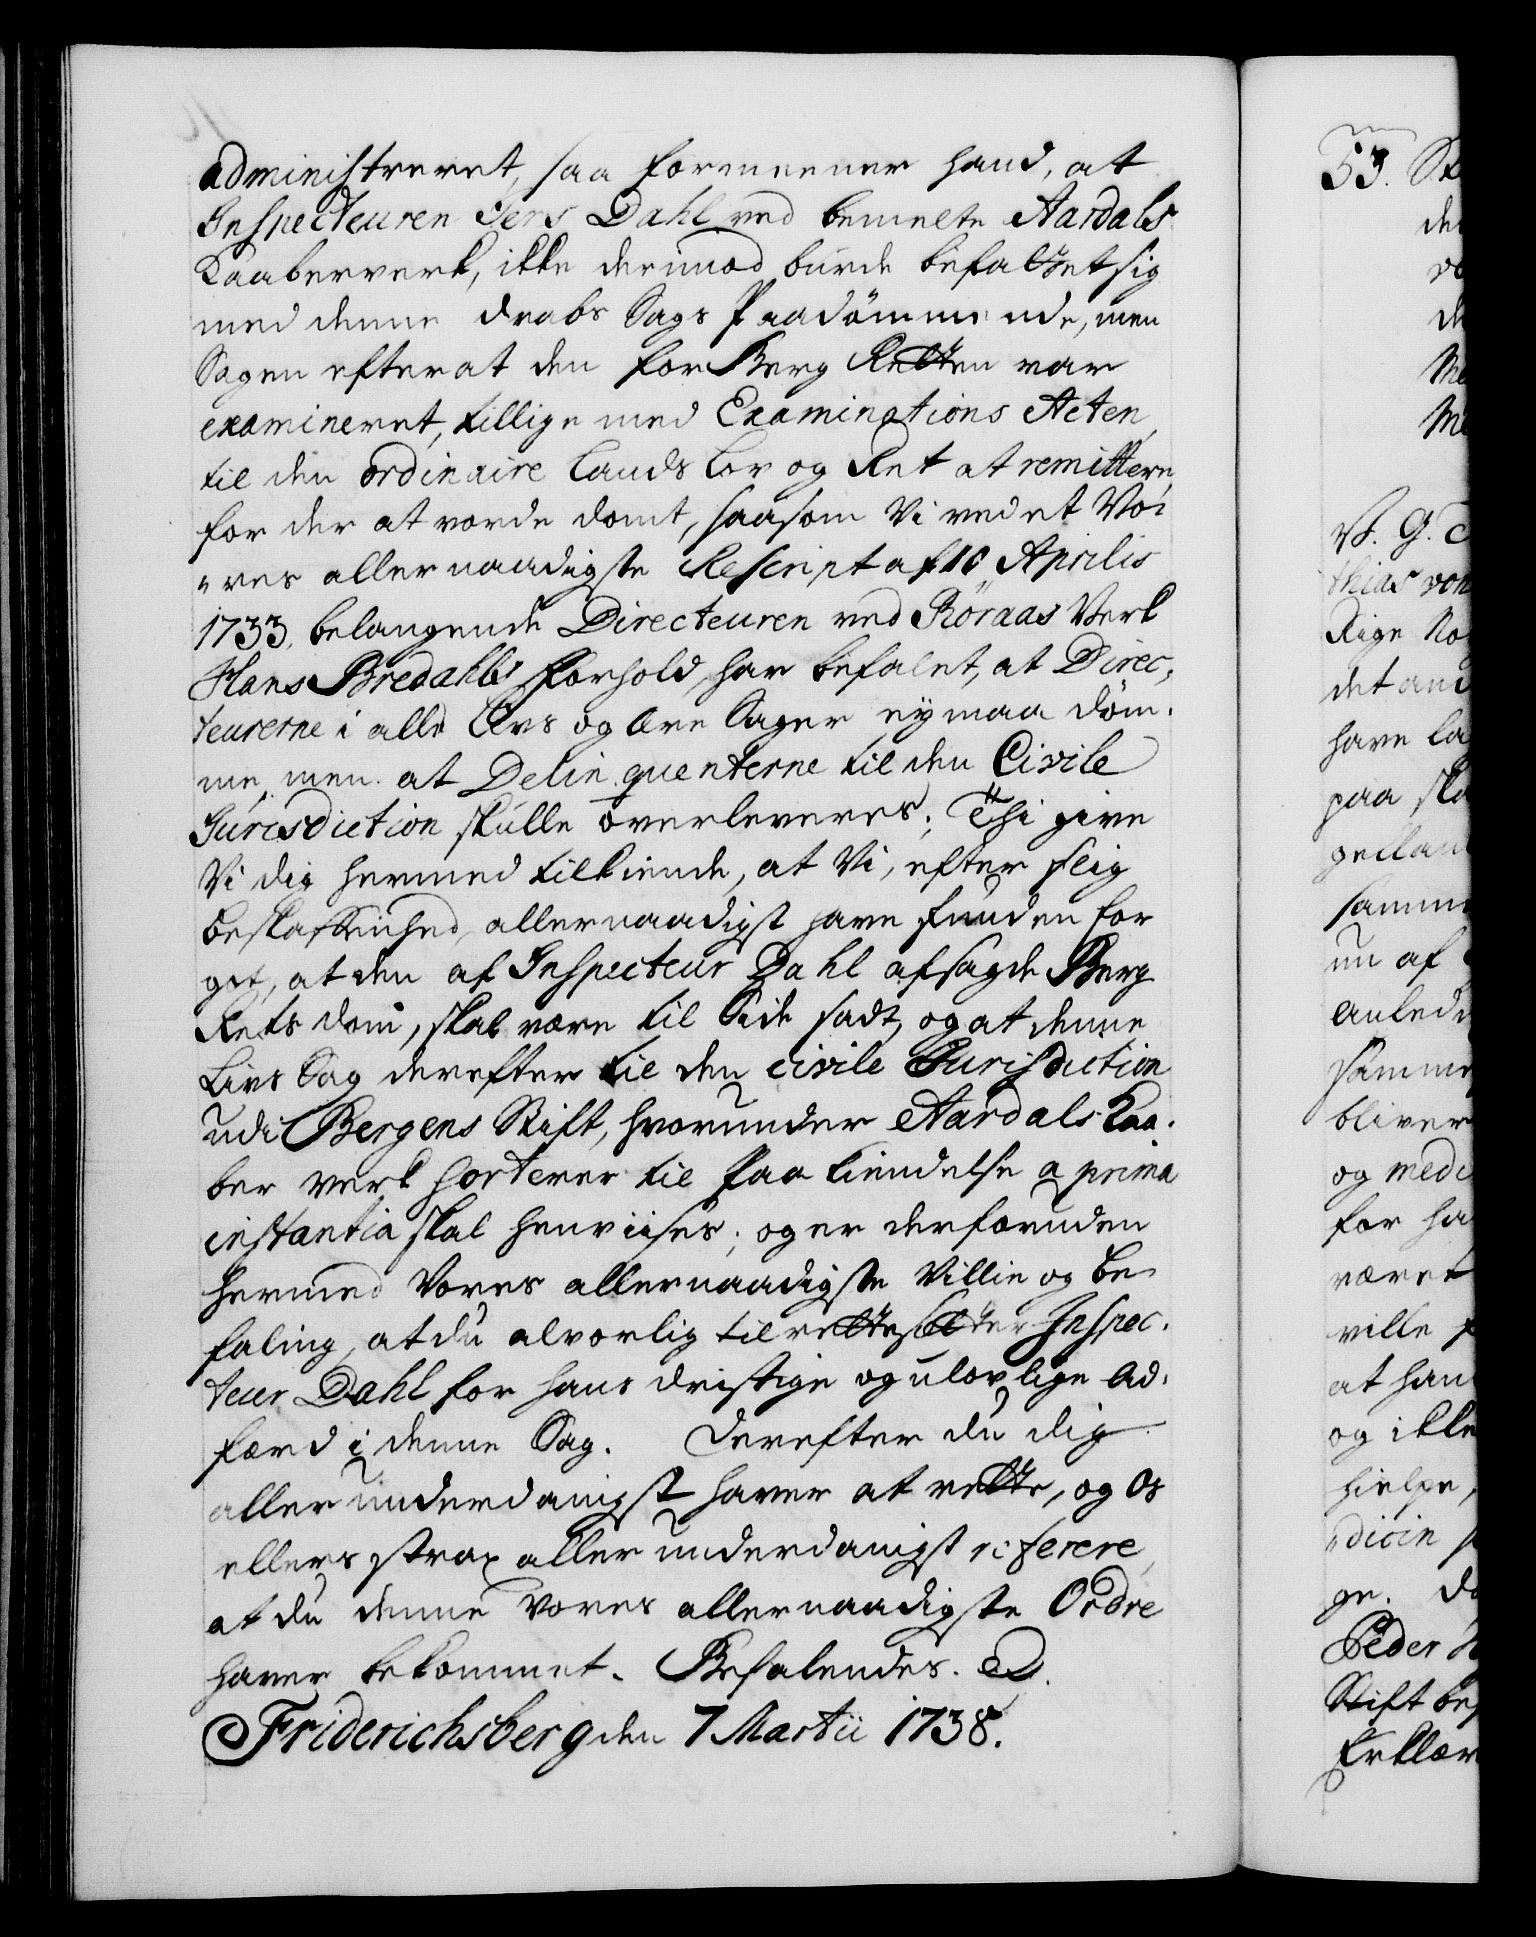 administreret, saa formeener hand, at
Inspecteuren Jens Dahl ved bemelte Aardals
Kaaberverk, ikke derimod burde befattet sig
med denne drabs Sags Paadömmende, men
Sagen efter at den for Berg Retten var
examineret, tillige med Examinations Acten,
til den ordinaire Lands Lov og Ret at remittere,
for der at vorde dömt, saasom Vi ved et Vo-
"res allernaadigste Rescript af 10 Aprilis
1733, belangende Directeuren ved Röraas Verk
Hans Bredahls forhold, har befalet, at Direc-
teurerne i alle Livs og Ære Sager ey maa döm-
me, men at Delinquenterne til den Civile
Jurisdiction skulle overleveres; Thi give
Vi dig hermed tilkiende, at Vi, efter slig
beskaffenhed, allernaadigst have funden for
got, at den af Inspecteur Dahl afsagde Berg
Rets dom, skal være til Side sadt, og at denne
Livs Sag derefter til den civile Jurisdiction
udi Bergens Stift, hvorunder Aardals Kaa-
ber verk sorterer til Paakiendelse a prima
instantia skal henviises; og er derforuden
hermed Vores allernaadigste Villie og be-
faling, at du alvorlig tilrettesætter Inspec-
teur Dahl for hans dristige og ulovlige Ad-
færd i denne Sag. Derefter du dig
allerunderdanigst haver at rette, og Os
ellers strax allerunderdanigst referere,
at du denne Vores allernaadigste Ordre
haver bekommet. Befalendes.
Friderichsberg den 7 Martii 1738.
53.
V. G. T
thias von
Rige No
det and
have la
paa ska
samme
nu af
anledn
samme
bliver
og medi
for ha
været
ville
at han
og ikke
hielpe,
"dicin
ge.
Peder
Stift bef
Erklær